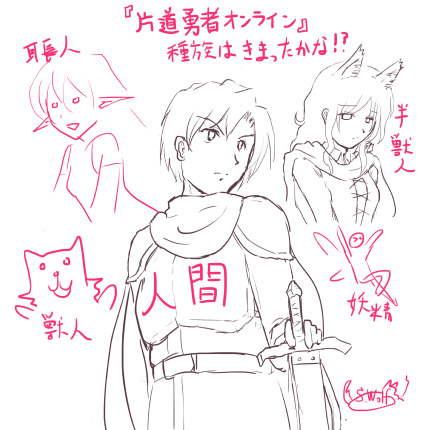 『片道勇者オンライン』
種族はきまったかな!?
耳長人
半獣人
人間
獣人
妖精
S.Wolf